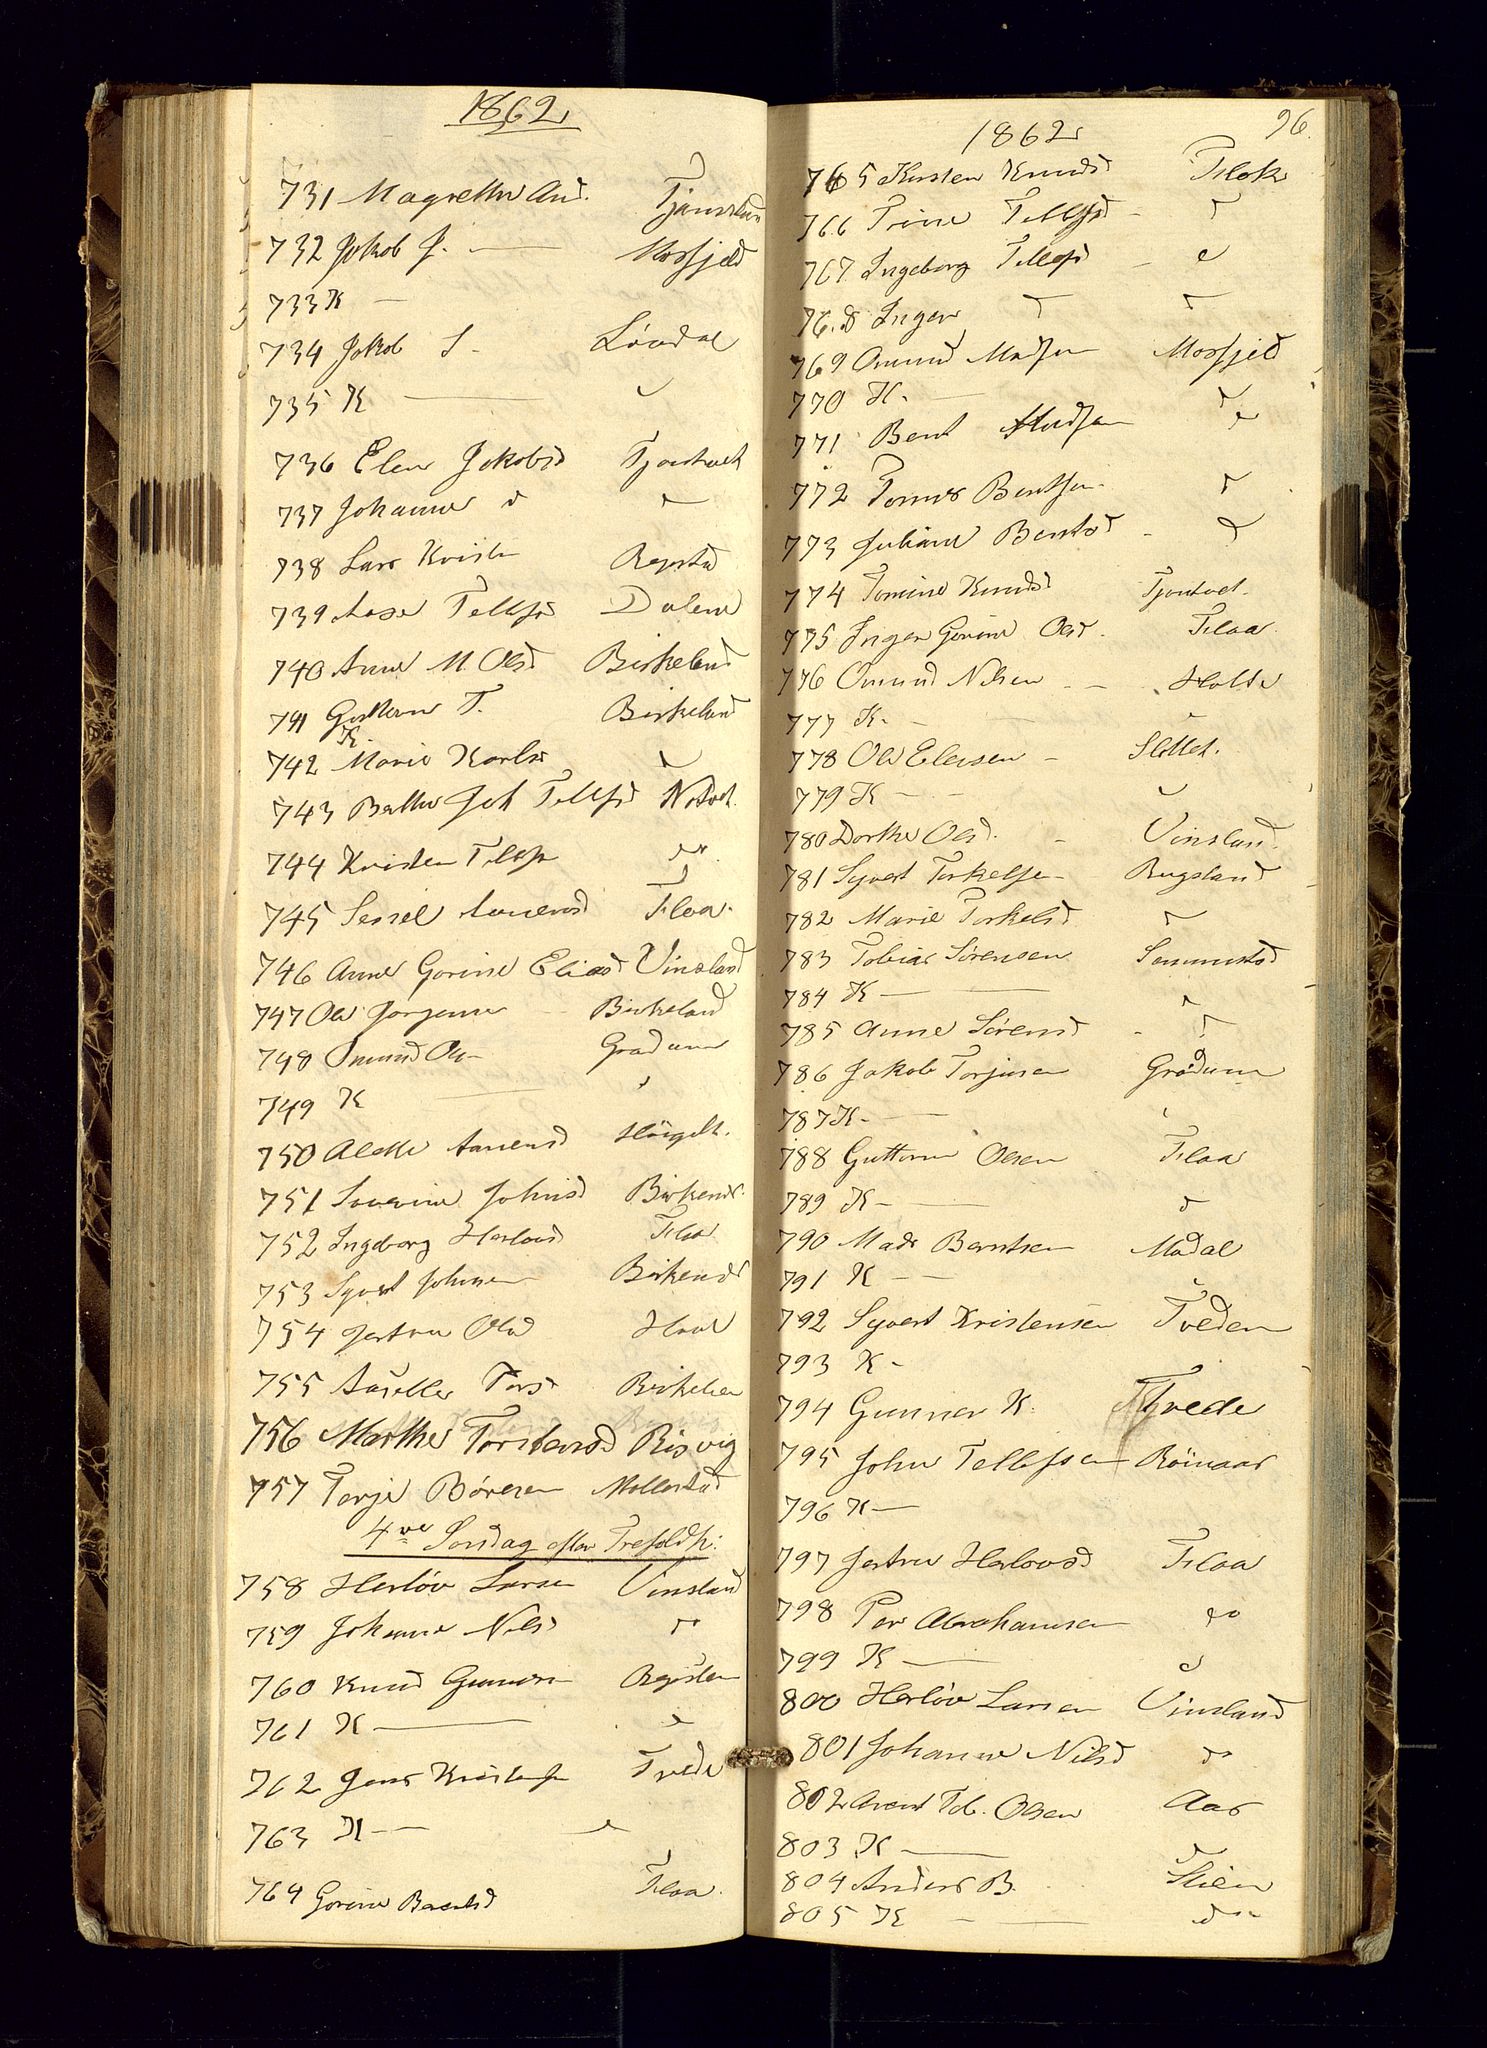 1862
731 Magrethe And. Tjømsland
732 Jokob J. — Mosfjeld
733 K —
734 Jokob S. Løvdal
735 K —
736 Elen Jokobsd Tjontvet
737 Johanne d
738 Lars Kristen Regestad
739 Aase Tellefsd Dalene
740 Anne M. Olsd Birkeland
741 Guttorm T. Birkeland
742 K. Marie Karlsd
743 Berthe Joh Tellefsd
744 Kristen Tellefsen do
745 Sessel Aanensd Flaa.
746 Anne Gorine Eliasd Vinsland
747 Ole Jorgensen Birkeland
748 Omund Olsen Gradum
749 K —
750 Aleke Aanensd
751 Severine Johnsd Birkenes.
752 Ingeborg Herlovsd Flaa
753 Syvert Johnsen Birkenes
754 Jertru Olsd
755 Birkelien
756 Marthe Torstensd Risvig
757 Terje Børesen Mollestad
4de Søndag efter Trefoldh:
758 Herløv Larsen Vinsland
759 Johanne Nilsd do
760 Knud Gunders Regesten
761 K —
762 Jens Kristensen Tvede
763 K —
764 Gorine Berntsd Flaa.
1862 96.
765 Kirsten Knudsd Flak
766 Trine Tellefsd
767 Ingeborg Tellefsd
768 Inger
769 Omund Madsen Mosfjeld
770 K. —
771 Bent Madsen
772 Tomes Bentsen
773 Juliane Bentsd
774 Tomine Knudsd Tjontvet.
775 Inger Gorine Olsd. Flaa
776 Omund Nilsen — Holte
777 K. —
778 Ole Elersen — Slottet.
779 K —
780 Dorthe Olsd. Vinsland.
781 Syvert Torkelsen Rugsland
782 Marie Torkelsd
783 Tobias Sørensen Senumstad
784 K —
785 Anne Sørensd
786 Jakob Torjusen Grødum
787 K. —
788 Guttorm Olsen Flaa
789 K — d
790 Mads Berntsen Modal
791 K —
792 Syvert Kristensen Tveden
793 K —
794 Gunner K. Tvede
795 John Tellefsen Røinaas
796 K —
797 Jertru Herlovsd Flaa
798 Per Abrahamsen do
799 K —
800 Herløv Larsen Vinsland
801 Johanne Nilsd do
802 Arent Tob. Olsen Aas
803 K —
804 Anders B. Stien
805 K — do